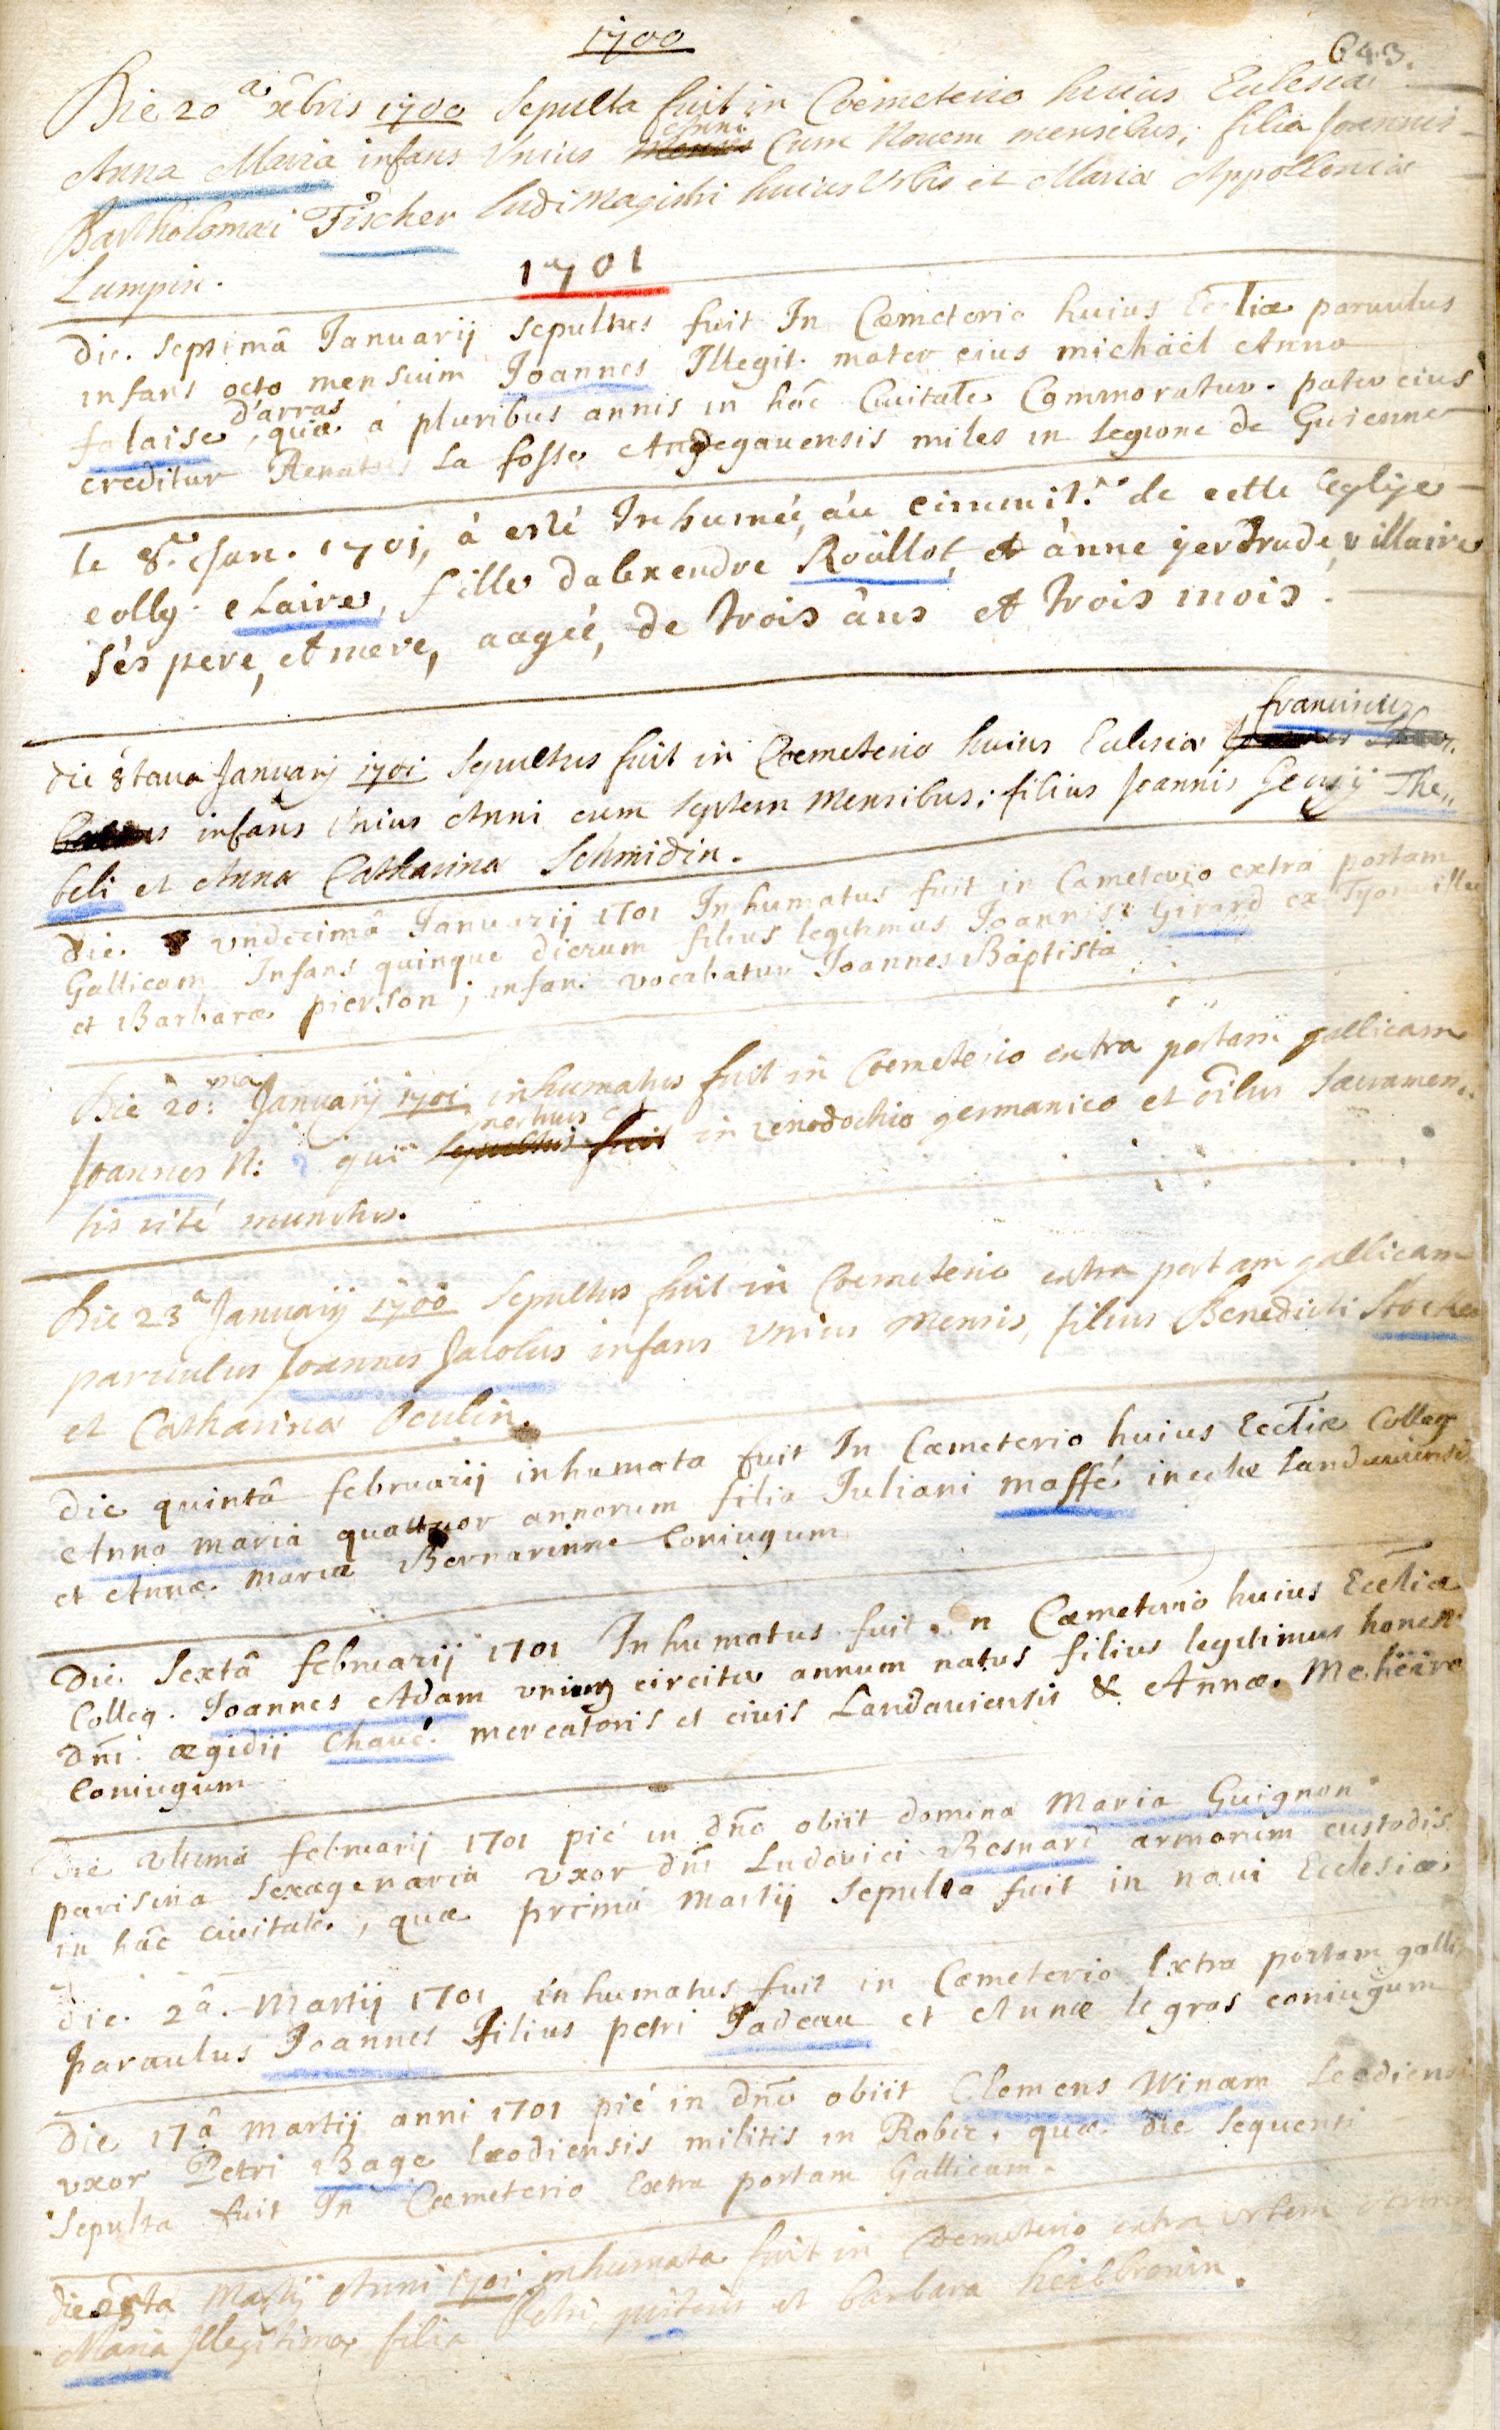 1700
643.
Die 20a xbris 1700 Sepulta fuit in Coemeterio huius Eclesiæ
Anna Maria infans Unius Anni Cum Novem mensibus, filia Joannis
Bartholomæi Fischer ludimagistri huius Urbis et Mariæ Appolloniæ
Lumpin.
1701
die. septimâ Januarij sepultus fuit In Cœmeterio huius Ecctiæ paruulus
infans octo mensium Joannes Illegit. mater eius michäel Anna
falaise d'arras, quæ à pluribus annis in hâc Ciuitate Commoratur. pater eius
creditur Renatus La fosse Andegauensis miles in legione de Guienne
le 8.e Jan. 1701, à esté Inhumeé, àu cimmit.re de cette Eeglise
collg. Claire, fille dalexendre Roüllot, et ànne jertrude, villaire
sés pere, et mere, aageé, de trois âns et trois mois.
die 8taua Januarij 1701 Sepultus fuit in Coemeterio huius Eclesiæ franciscus
infans Unius Anni cum septem Mensibus; filius Joannis Georgij The,,
beli et Annæ Catharinæ Schmidin.
die. undecimâ Januarij 1701 Inhumatus fuit in Cameterio extrà portam
Gallicam Infans quinque dierum filius legitimus Joannis Girard ex Tyonuille
et Barbaræ pierson; infans vocabatur Joannes Baptista
Die 20:ma Januarij 1701 inhumatus fuit in Coemeterio extra portam gallicam
Joannes N: qui mortuus est in xenodochio germanico et oîbus Sacramen,,
tis rité munitus.
Die 23a Januarij 1700 Sepultus fuit in Coemeterio extra portam gallicam
paruulus Joannes Jacobus infans Unius Mensis, filius Benedicti
et Catharinæ Oculin.
Die quintâ februarij inhumata fuit In Cœmeterio huius Ecctiæ Colleg
Anna maria quattuor annorum filia Juliani maffé incolæ Landauiensis
et Annæ Mariæ Bernarinne Coniugum
Die Sextâ februarij 1701 Inhumatus fuit in Cœmeterio huius Ecctiæ
Colleg. Joannes Adam unum circiter annum natus filius legitimus honest
Dni ægidij Chaué mercatoris et ciuis Landauiensis & Annæ
Coniugum
Die ultimâ februarij 1701 pié in dno obiit domina Maria Guignon
parisina Sexagenaria uxor dni Ludouici Besnard armorum custodis
in hâc ciuitate, quæ primâ Martij Sepulta fuit in naui Ecclesiæ
die. 2â. Martij 1701 inhumatus fuit in Cœmeterio Extra portam galli
paruulus Joannes filius petri Jadeau et Annæ legros coniugum
Die 17â Martij anni 1701 pié in dno obiit Clemens Winam Leodiensi
uxor Petri Bage leodiensis militis in Robec. quæ die Sequenti
Sepulta fuit In Cœmeterio Extra portam Gallicam.
Martij Anni 1701 inhumata fuit in Coemeterio extra urbem
Maria Illegitima filia Petri et barbara heilbronin.